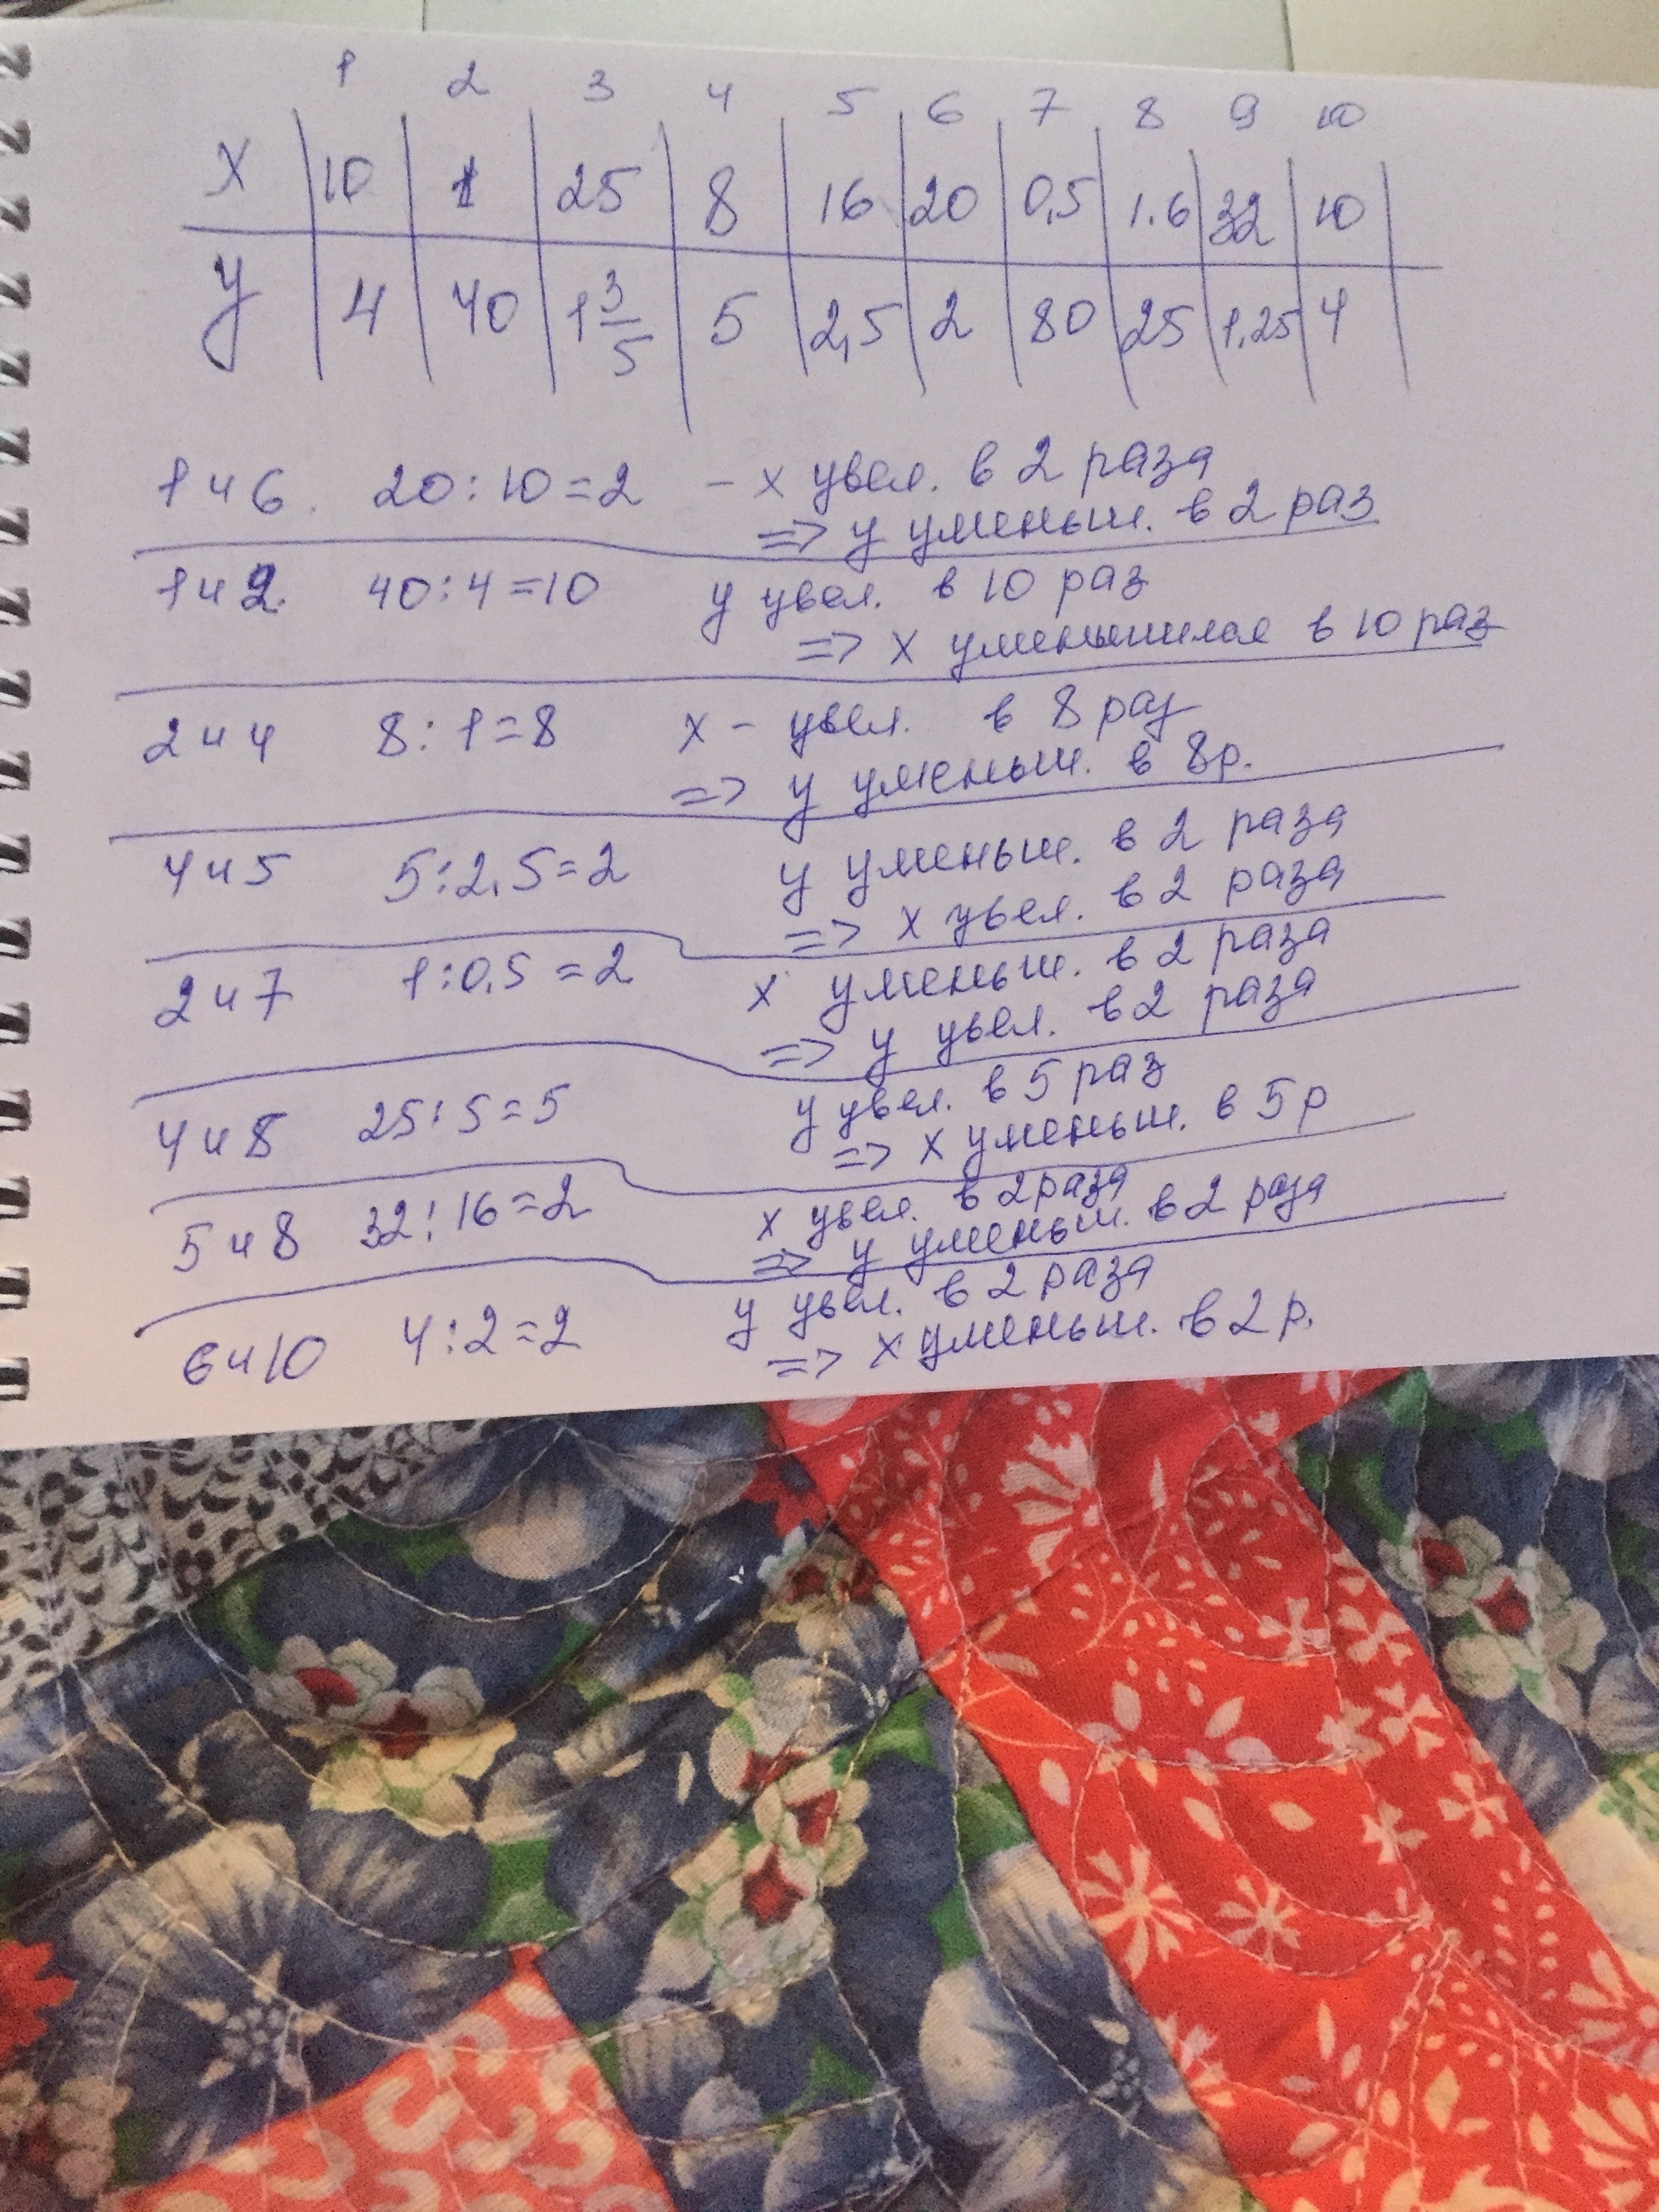 1 2 3 4 5 6 7 8 9 10
x 10 1 25 8 16 20 0,5 1.6 32 10
y 4 40 1 3/5 5 2,5 2 80 25 1,25 4
1 и 6. 20 : 10 = 2 – x увел. в 2 раза
=> y уменьш. в 2 раз
1 и 2. 40 : 4 = 10 y увел. в 10 раз
=> x уменьшился в 10 раз
2 и 4 8 : 1 = 8 x – увел. в 8 раз
=> y уменьш. в 8р.
4 и 5 5 : 2,5 = 2 y уменьш. в 2 раза
=> x увел. в 2 раза
2 и 7 1 : 0,5 = 2 x уменьш. в 2 раза
=> y увел. в 2 раза
4 и 8 25 : 5 = 5 y увел. в 5 раз
=> x уменьш. в 5 р
5 и 8 32 : 16 = 2 x увел. в 2 раза
=> y уменьш. в 2 раза
6 и 10 4 : 2 = 2 y увел. в 2 раза
=> x уменьш. в 2 р.